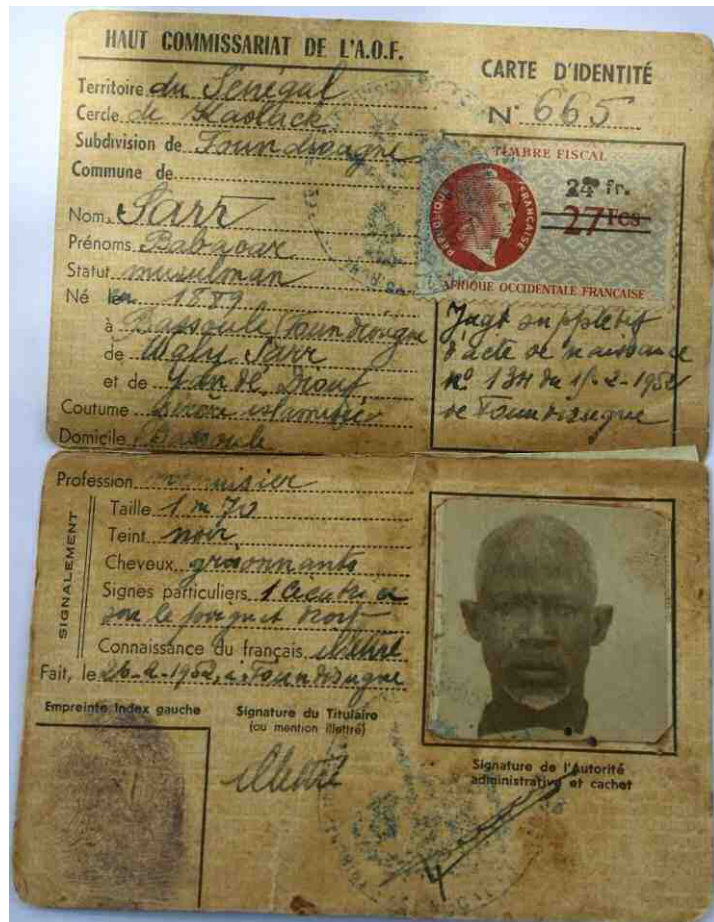 HAUT COMMISSARIAT DE L'A.O.F.
Territoire du Sénégal
Cercle de Kaolack
Subdivision de Foundiougne
Commune de
Nom Sarr
Prénoms Babacar
Statut musulman
Né le en 1889
à Bassoule (Foundiougne
de Ugly Sarr
et de Yandé Diouf
Coutume Sérère islamisée
Domicile Bassoule
CARTE D'IDENTITÉ
N° 665
TIMBRE FISCAL
24 fr.
27 Fcs
REPUBLIQUE FRANÇAISE
AFRIQUE OCCIDENTALE FRANÇAISE
Jugt supplétif
d'acte de naissance
n° 134 du 15-2-1952
de Foundiougne
Profession menuisier
SIGNALEMENT
Taille 1 m 70
Teint noir
Cheveux grisonnants
Signes particuliers 1 cicatrice
sur le poignet droit
Connaissance du français illettré
Fait, le 26-2-1952, à Foundiougne
Empreinte Index gauche
Signature du Titulaire
(ou mention illettré)
illettré
Signature de l'Autorité
administrative et cachet